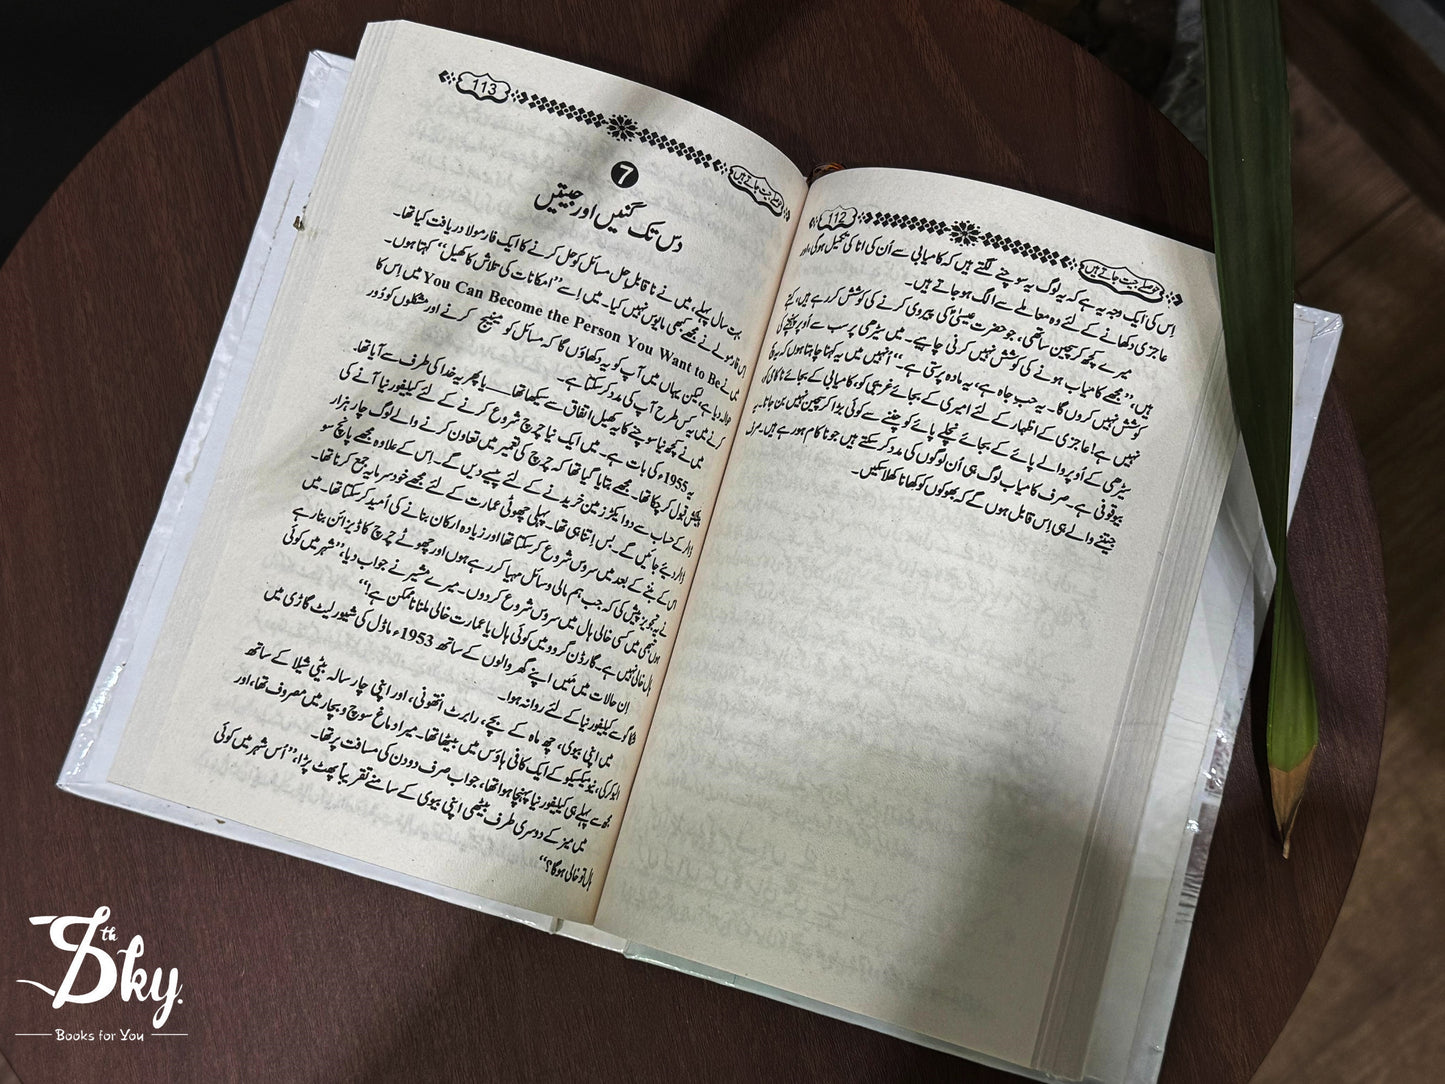 حوصلے جیت جاتے ہیں
112
اس کی ایک وجہ یہ ہے کہ یہ لوگ یہ سوچنے لگتے ہیں کہ کامیابی سے اُن کی انا کی تکمیل ہوگی، اور
عاجزی دکھانے کے لئے وہ معاملے سے الگ ہوجاتے ہیں۔
میرے کچھ کرسچین ساتھی، جو حضرت عیسیٰؑ کی پیروی کرنے کی کوشش کر رہے ہیں، کہتے
ہیں، ”مجھے کامیاب ہونے کی کوشش نہیں کرنی چاہیے۔ میں سیڑھی پر سب سے اُوپر پہنچنے کی
کوشش نہیں کروں گا۔ یہ حب جاہ ہے، یہ مادہ پرستی ہے۔“ اُنہیں میں یہ کہنا چاہتا ہوں کہ یہ نیکی
نہیں ہے! عاجزی کے اظہار کے لئے امیری کے بجائے غریبی کو، کامیابی کے بجائے ناکامی کو،
سیڑھی کے اُوپر والے پائے کے بجائے نچلے پائے کو چننے سے کوئی بڑا کرسچین نہیں بن جاتا۔ یہ
بیوقوفی ہے۔ صرف کامیاب لوگ ہی اُن لوگوں کی مدد کر سکتے ہیں جو ناکام ہو رہے ہیں۔ صرف
جیتنے والے ہی اِس قابل ہوں گے کہ بھوکوں کو کھانا کھلا سکیں۔
حوصلے جیت جاتے ہیں
113
7
دس تک گنیں اور جیتیں
بہت سال پہلے، میں نے ناقابلِ حل مسائل کو حل کرنے کا ایک فارمولا دریافت کیا تھا۔
اس فارمولے نے مجھے کبھی مایوس نہیں کیا۔ میں اِسے ”امکانات کی تلاش کا کھیل“ کہتا ہوں۔
میں نے You Can Become the Person You Want to Be میں اِس کا
حوالہ دیا ہے، لیکن یہاں میں آپ کو یہ دکھاؤں گا کہ مسائل کو مینیج کرنے اور مشکلوں کو دُور
کرنے میں یہ کس طرح آپ کی مدد کر سکتا ہے۔
میں نے کچھ نیا سوچنے کا یہ کھیل اتفاق سے سیکھا تھا — یا پھر یہ خدا کی طرف سے آیا تھا۔
یہ 1955ء کی بات ہے۔ میں ایک نیا چرچ شروع کرنے کے لئے کیلیفورنیا آنے کی
پیشکش قبول کر چکا تھا۔ مجھے بتایا گیا تھا کہ چرچ کی تعمیر میں تعاون کرنے والے لوگ چار ہزار
ڈالر کے حساب سے دو ایکڑ زمین خریدنے کے لئے پیسے دیں گے۔ اِس کے علاوہ مجھے پانچ سو
ڈالر دیئے جائیں گے۔ بس اِتنا ہی تھا۔ پہلی چھوٹی عمارت کے لئے مجھے خود سرمایہ جمع کرنا تھا۔
اس کے بننے کے بعد میں سروس شروع کر سکتا تھا اور زیادہ ارکان بنانے کی اُمید کر سکتا تھا۔ میں
نے یہ تجویز پیش کی کہ جب ہم مالی وسائل مہیا کر رہے ہوں اور چھوٹے چرچ کا ڈیزائن بنا رہے
ہوں تبھی میں کسی خالی ہال میں سروس شروع کر دوں۔ میرے مشیر نے جواب دیا، ”شہر میں کوئی
ہال خالی نہیں ہے۔ گارڈن گروو میں کوئی ہال یا عمارت خالی ملنا ناممکن ہے!“
اِن حالات میں میں اپنے گھر والوں کے ساتھ 1953ء ماڈل کی شیورلیٹ گاڑی میں
شکاگو سے کیلیفورنیا کے لئے روانہ ہوا۔
میں اپنی بیوی، چھ ماہ کے بچے، رابرٹ انتھونی، اور اپنی چار سالہ بیٹی شیلا کے ساتھ
البوکرکی، نیومیکسیکو کے ایک کافی ہاؤس میں بیٹھا تھا۔ میرا دماغ سوچ و بچار میں مصروف تھا، اور
مجھ سے پہلے ہی کیلیفورنیا پہنچا ہوا تھا، جو اب صرف دو دن کی مسافت پر تھا۔
میں میز کے دوسری طرف بیٹھی اپنی بیوی کے سامنے تقریباً پھٹ پڑا، ”اُس شہر میں کوئی
ہال تو خالی ہوگا؟“
8th Sky.
Books for You